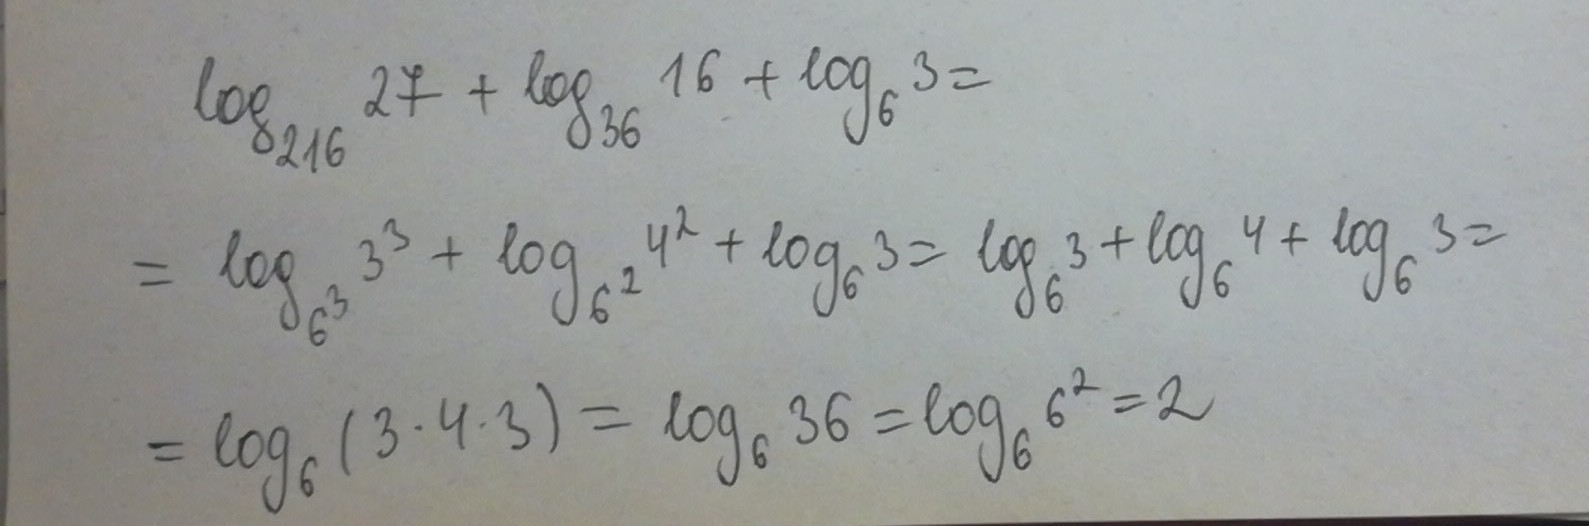 log₂₁₆ 27 + log₃₆ 16 + log₆ 3 =
= log_{6³} 3³ + log_{6²} 4² + log₆ 3 = log₆ 3 + log₆ 4 + log₆ 3 =
= log₆ (3·4·3) = log₆ 36 = log₆ 6² = 2